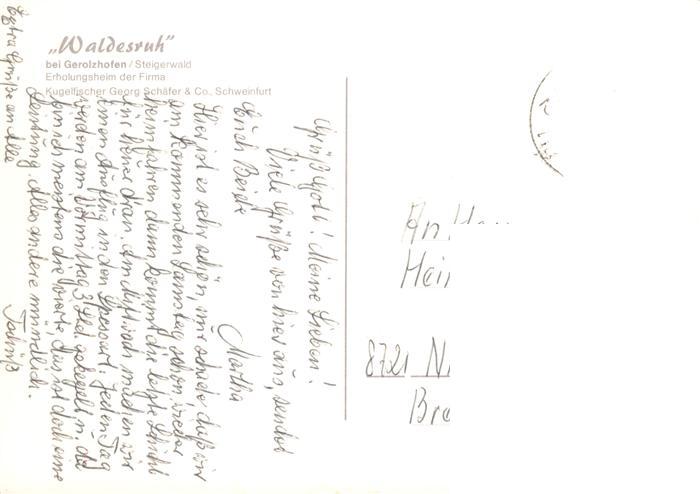 „Waldesruh"
bei Gerolzhofen / Steigerwald
Erholungsheim der Firma
Kugelfischer Georg Schäfer & Co., Schweinfurt
Grüß Gott! Meine Lieben!
Viele Grüße von hier aus, sendet
Euch Beide Martha
Hier ist es sehr schön, nur schade daß wir
am kommenden Samstag schon wieder
heim fahren dann kommt die letzte Schicht
für heuer dran. Am Mittwoch machen wir
einen Ausflug in den Spessart. Jeden Tag
werden am Vormittag 3 Std. gekegelt u. da
bin ich meistens die vierte, das ist doch eine
Leistung. Alles andere mündlich.
Tschüß
Extra Grüße an Alle
An
8721